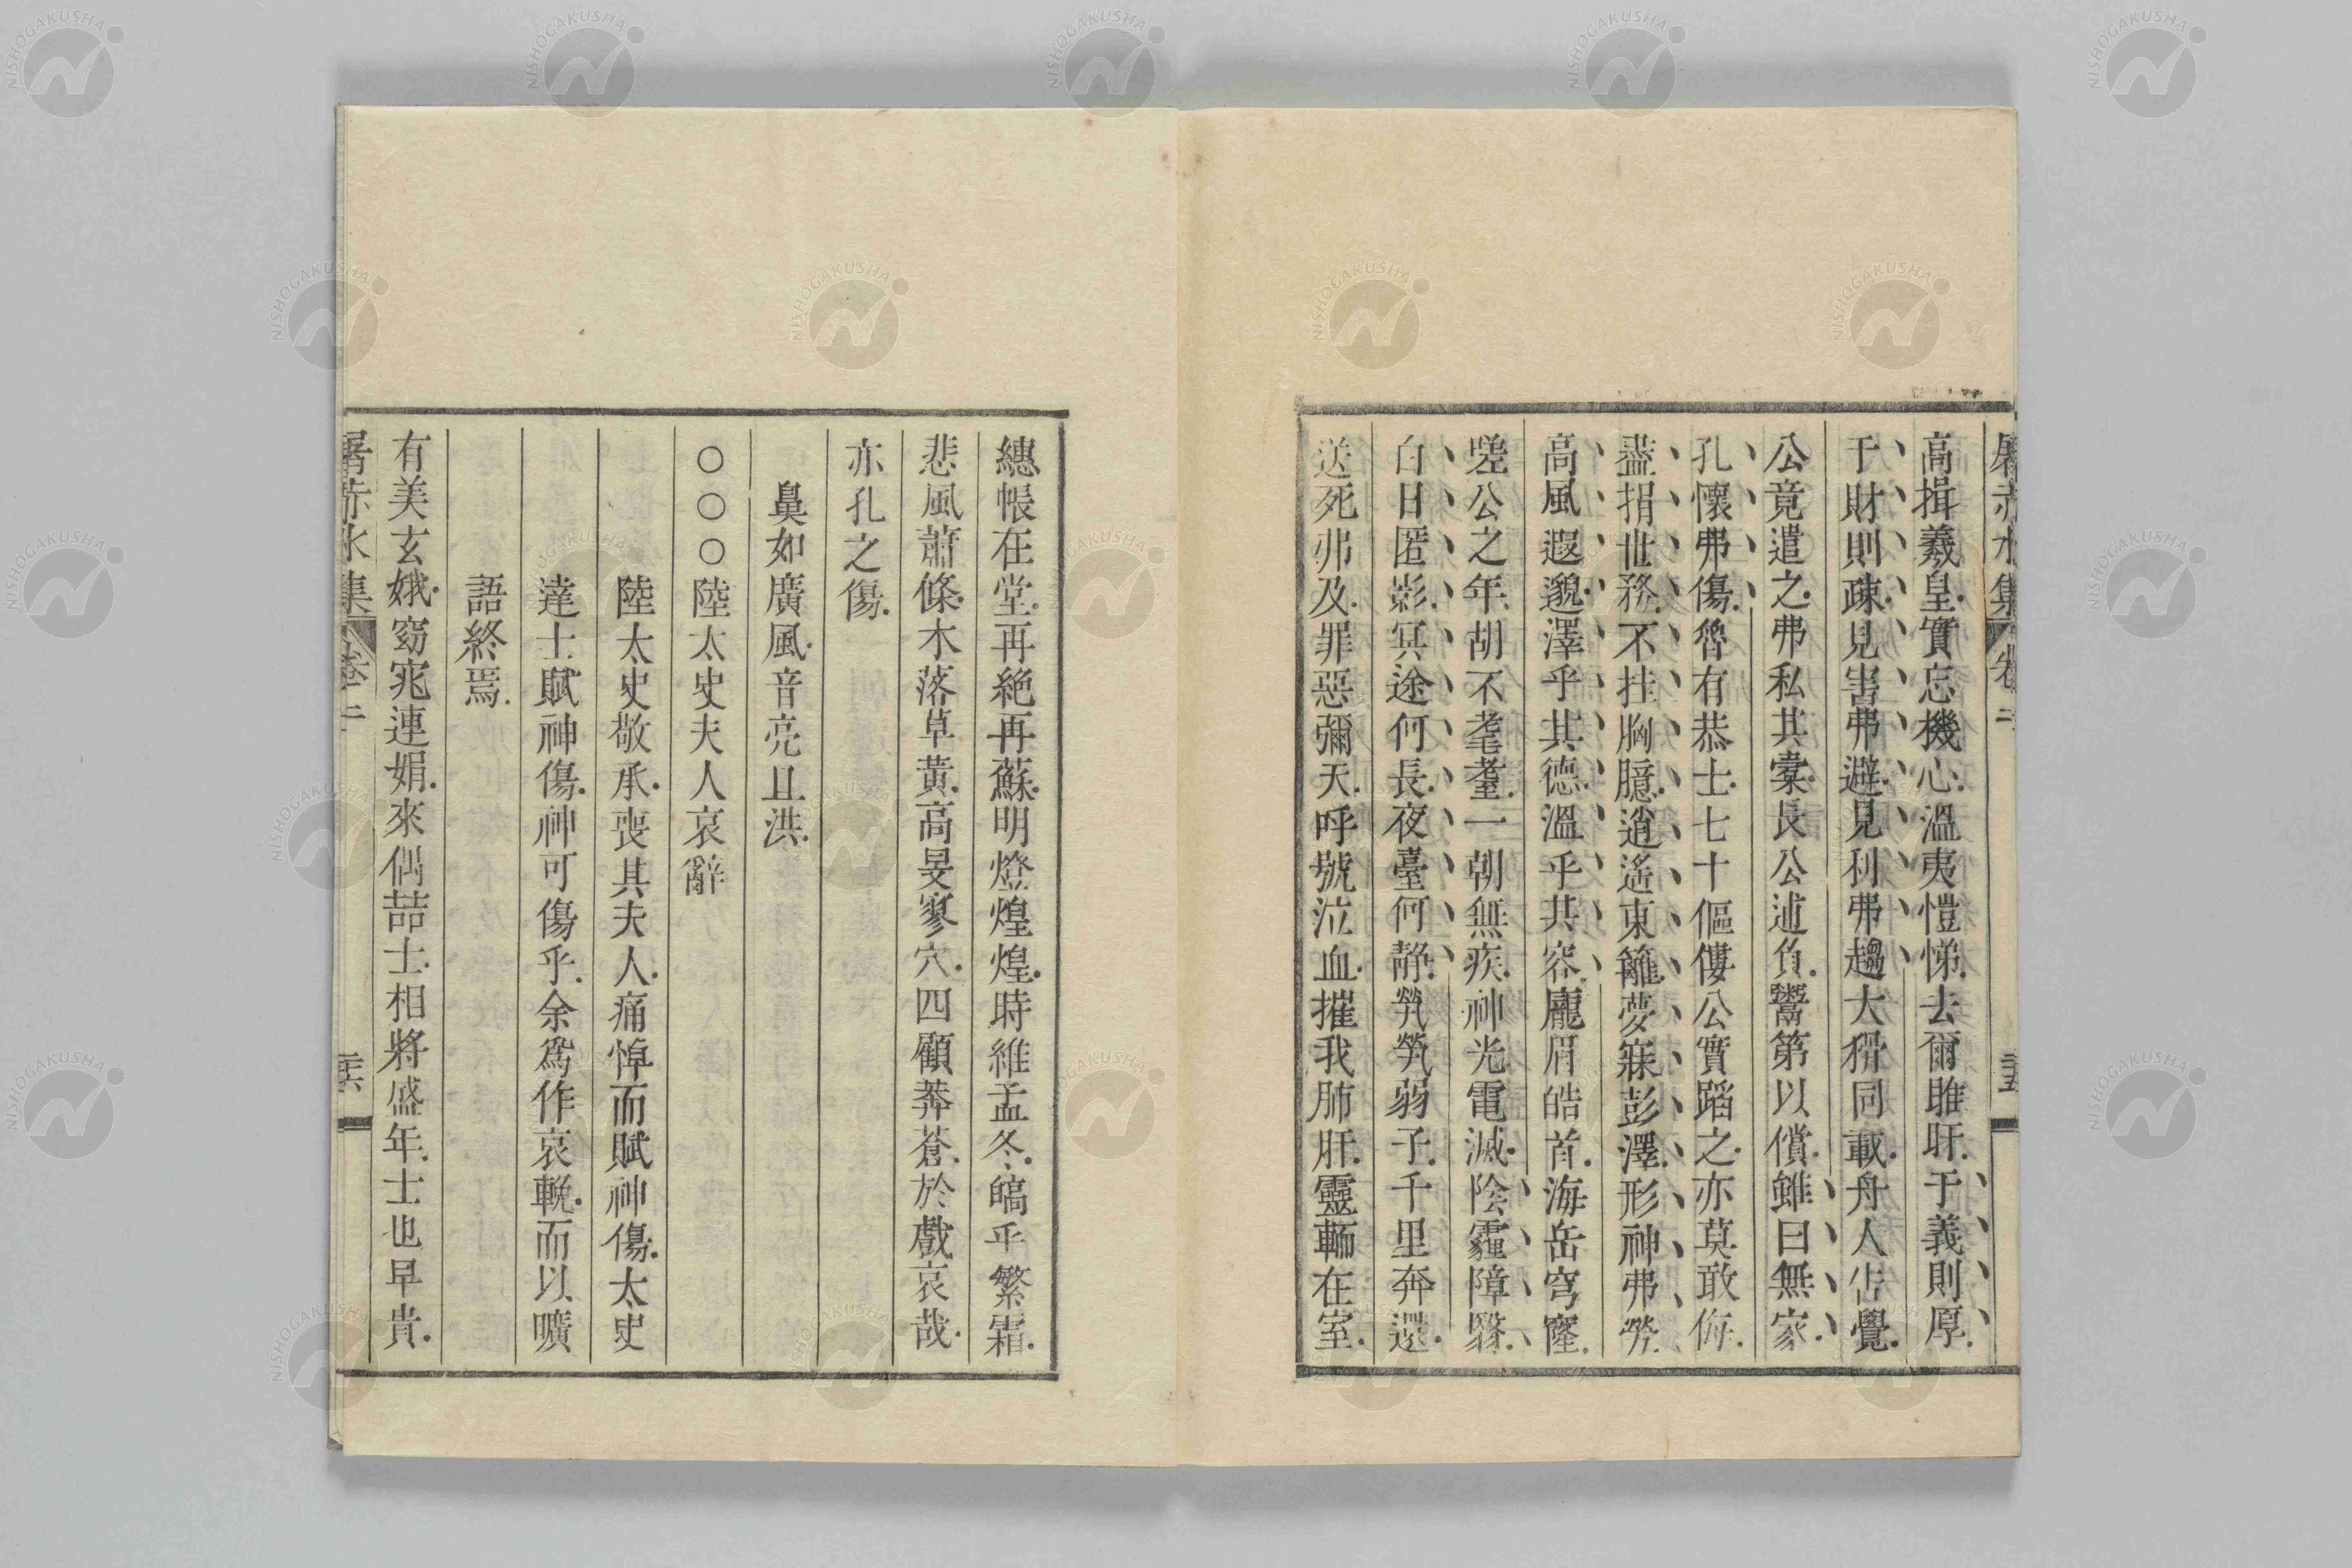 屠赤水集 卷二 三五
高揖羲皇實忘機心溫夷愷悌去爾睢盱于義則厚
于財則疎見害弗避見利弗趨大猾同載舟人告覺
公竟遣之弗私其橐長公逋負鬻第以償雖曰無家
孔懷弗傷魯有恭士七十傴僂公實蹈之亦莫敢侮
盡捐世務不挂胸臆逍遙東籬夢寐彭澤形神弗勞
高風遐邈澤乎其德溫乎其容龐眉皓首海岳穹窿
嗟公之年胡不耄耋一朝無疾神光電滅陰霾障翳
白日匿影冥途何長夜臺何靜煢煢弱子千里奔還
送死弗及罪惡彌天呼號泣血摧我肺肝靈輀在室
繐帳在堂再絕再蘇明燈煌煌時維孟冬皜乎繁霜
悲風蕭條木落草黃高旻寥穴四顧莽蒼於戲哀哉
亦孔之傷
臭如廣風音亮且洪
○○○陸太史夫人哀辭
陸太史敬承喪其夫人痛悼而賦神傷太史
達士賦神傷神可傷乎余爲作哀輓而以曠
語終焉
有美玄娥窈窕連娟來偶喆士相將盛年士也早貴
屠赤水集 卷二 三六
NISHOGAKUSHA